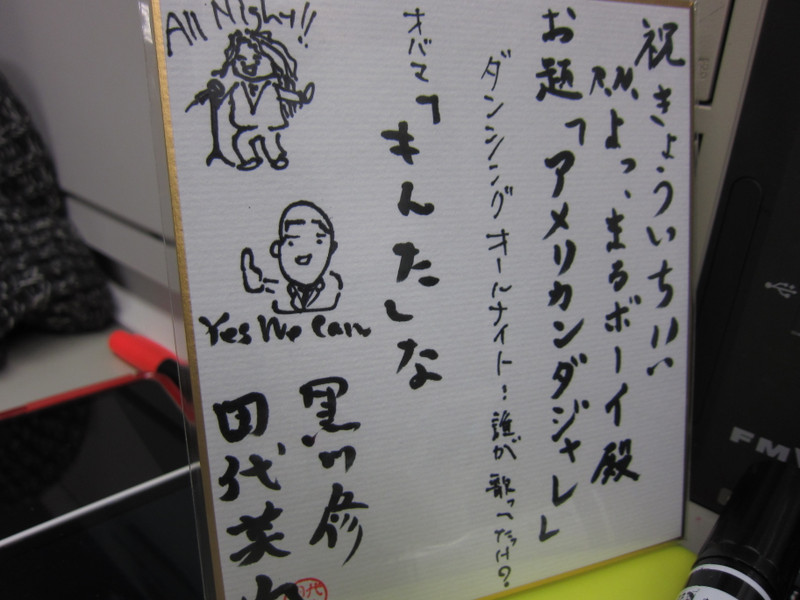 祝 きょういちりい
R.N.よっ、まるボーイ殿
お題「アメリカンダジャレ」
ダンシングオールナイト: 誰が歌ってたっけ?
オバマ「きんたしな
All Night!!
Yes We Can
黒川修
田代英
FMV